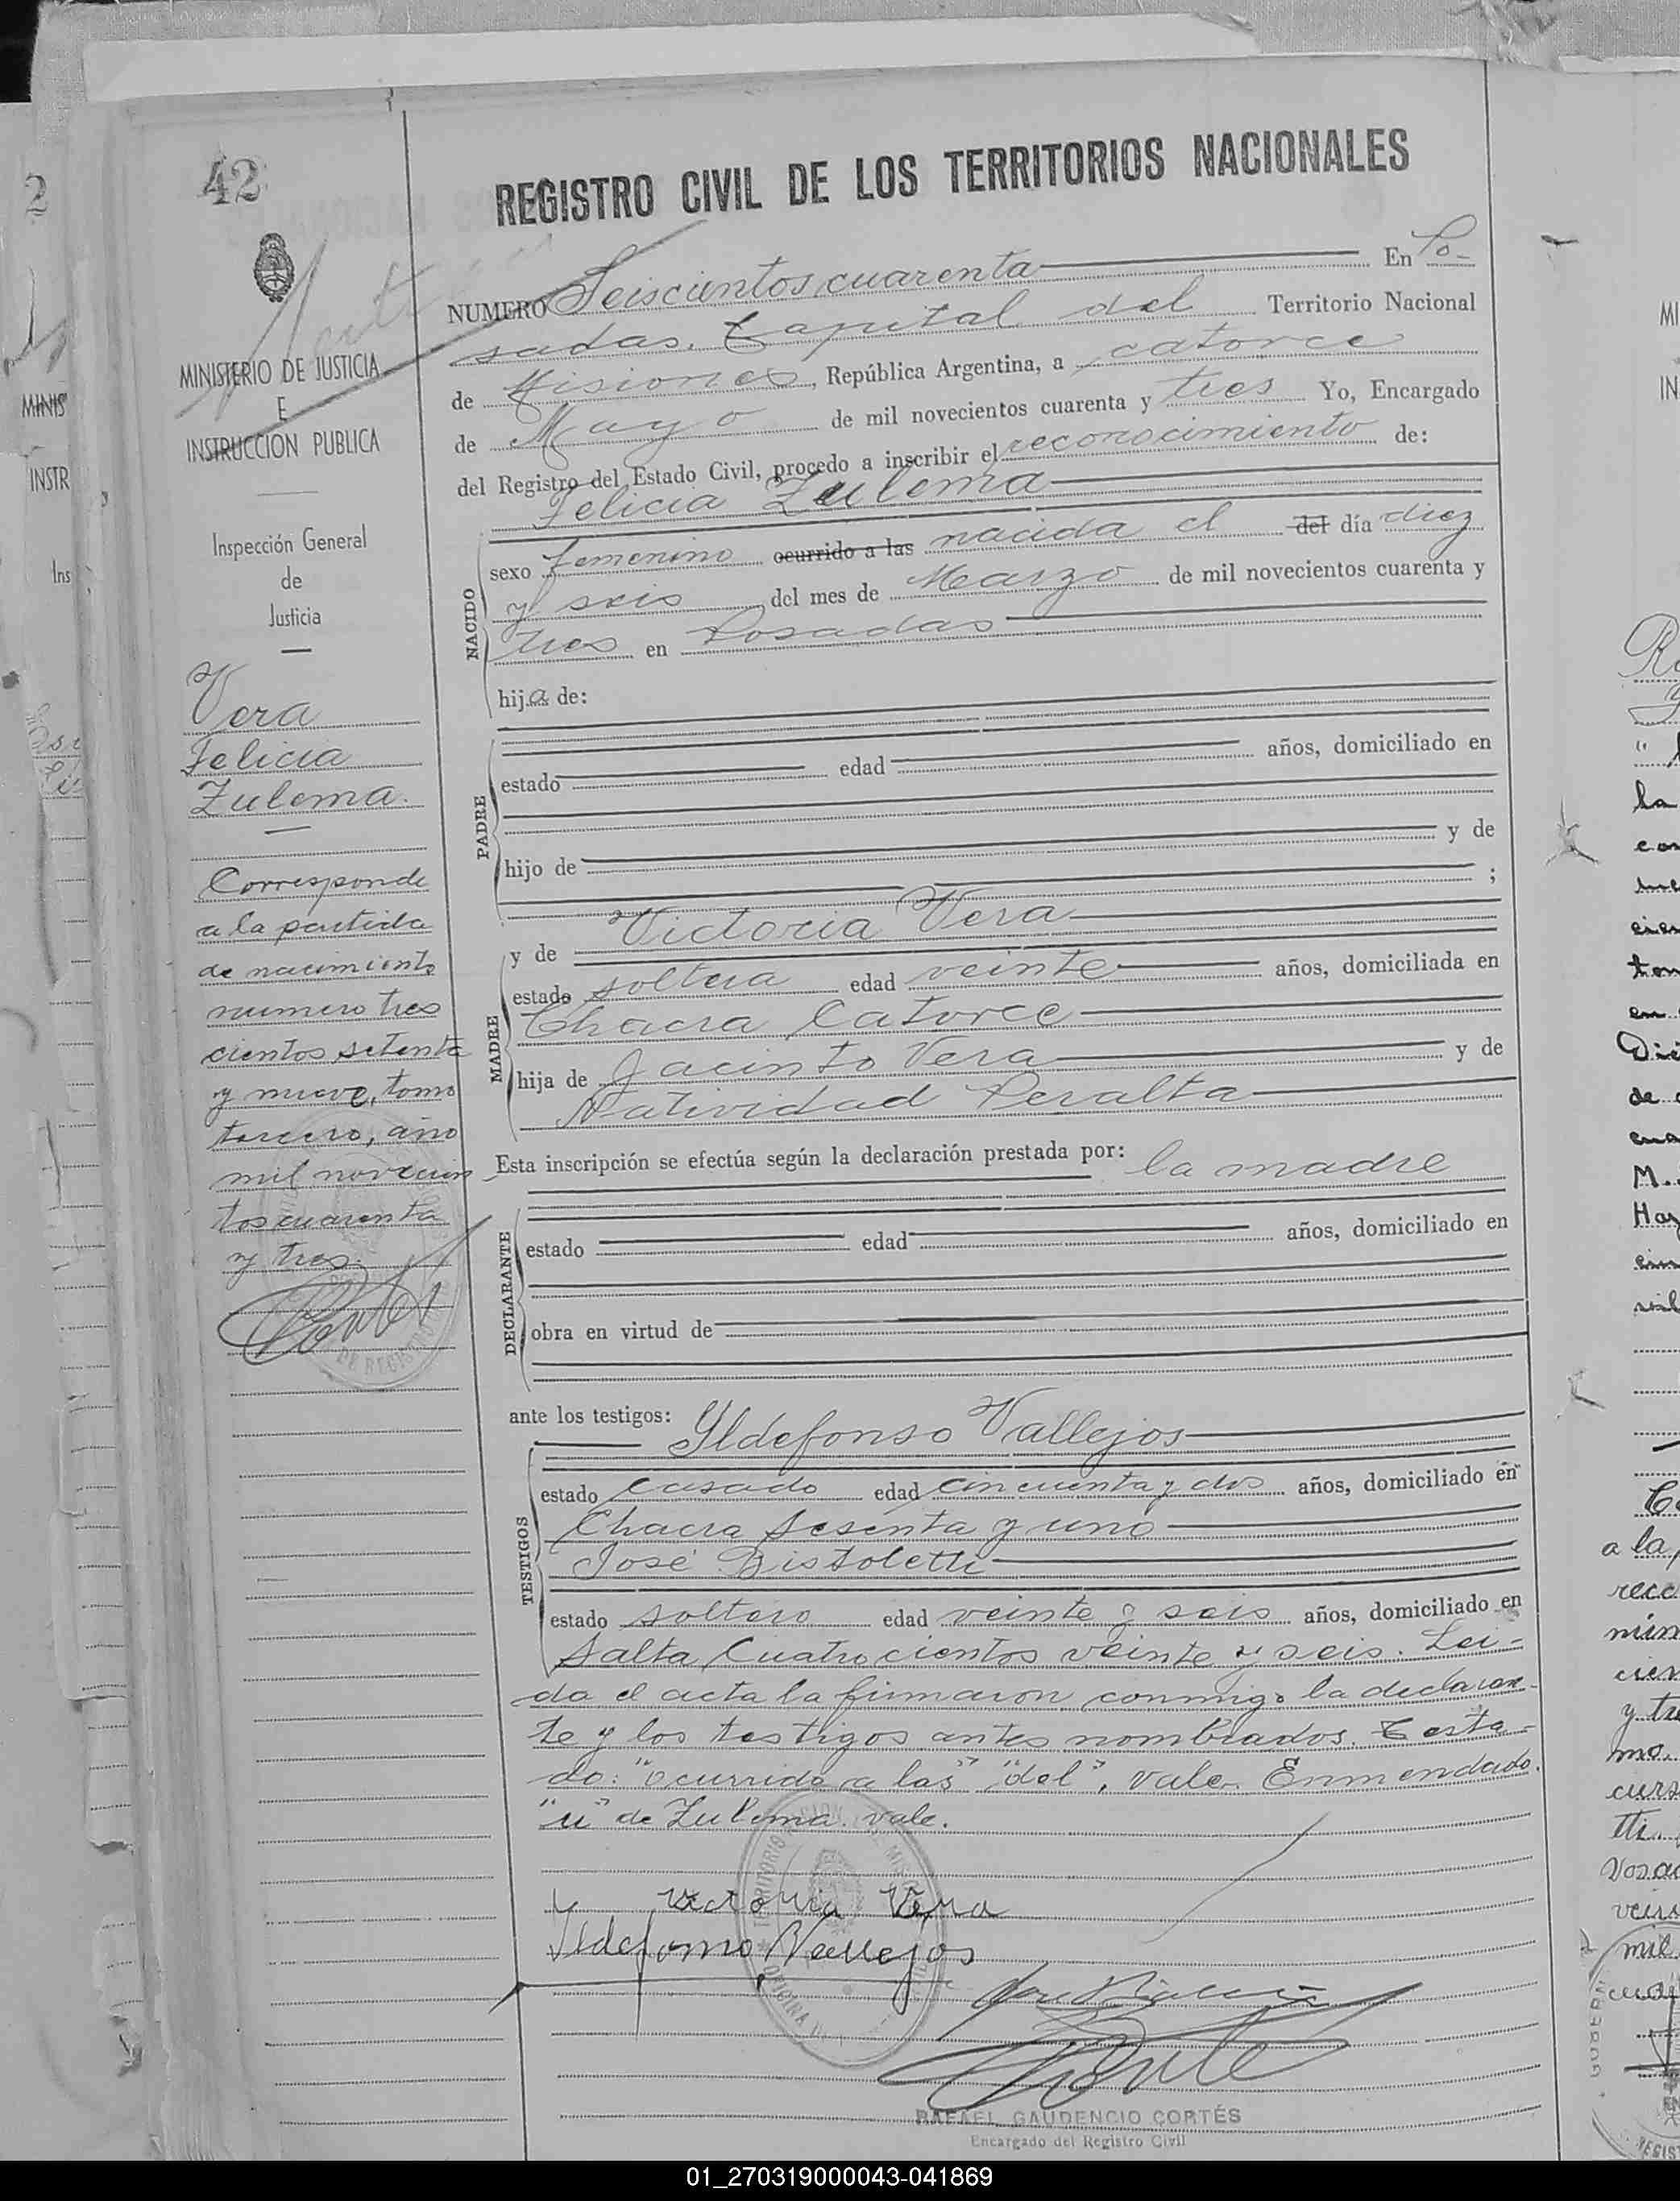 42
REGISTRO CIVIL DE LOS TERRITORIOS NACIONALES
MINISTERIO DE JUSTICIA
E
INSTRUCCION PUBLICA
Inspección General
de
Justicia
Vera
Felicia
Zulema.
Corresponde
a la partida
de nacimiento
numero tres
cientos setenta
y nueve, tomo
tercero, año
mil novecien
tos cuarenta
y tres.
NUMERO Seiscientos cuarenta En Po-
sadas. Capital del Territorio Nacional
de Misiones, República Argentina, a catorce
de Mayo de mil novecientos cuarenta y tres Yo, Encargado
del Registro del Estado Civil, procedo a inscribir el reconocimiento de:
Felicia Zulema
NACIDO
sexo femenino ocurrido a las nacida el del día diez
y seis del mes de Marzo de mil novecientos cuarenta y
tres en Posadas
hija de:
PADRE
estado edad años, domiciliado en
hijo de y de
;
y de Victoria Vera
MADRE
estado soltera edad veinte años, domiciliada en
Chacra Catorce
hija de Jacinto Vera y de
Natividad Peralta
Esta inscripción se efectúa según la declaración prestada por: la madre
DECLARANTE
estado edad años, domiciliado en
obra en virtud de
ante los testigos: Yldefonso Vallejos
TESTIGOS
estado casado edad cincuenta y dos años, domiciliado en
Chacra sesenta y uno
José Bistoletti
estado soltero edad veinte y seis años, domiciliado en
Salta Cuatrocientos veinte y seis. Lei-
da el acta la firmaron conmigo la declaran-
te y los testigos antes nombrados. Testa-
do: "ocurrido a las" "del", vale. Enmendado.
"u" de Zulema. vale.
Victoria Vera
Ildefonso Vallejos
RAFAEL GAUDENCIO CORTÉS
Encargado del Registro Civil
01_270319000043-041869